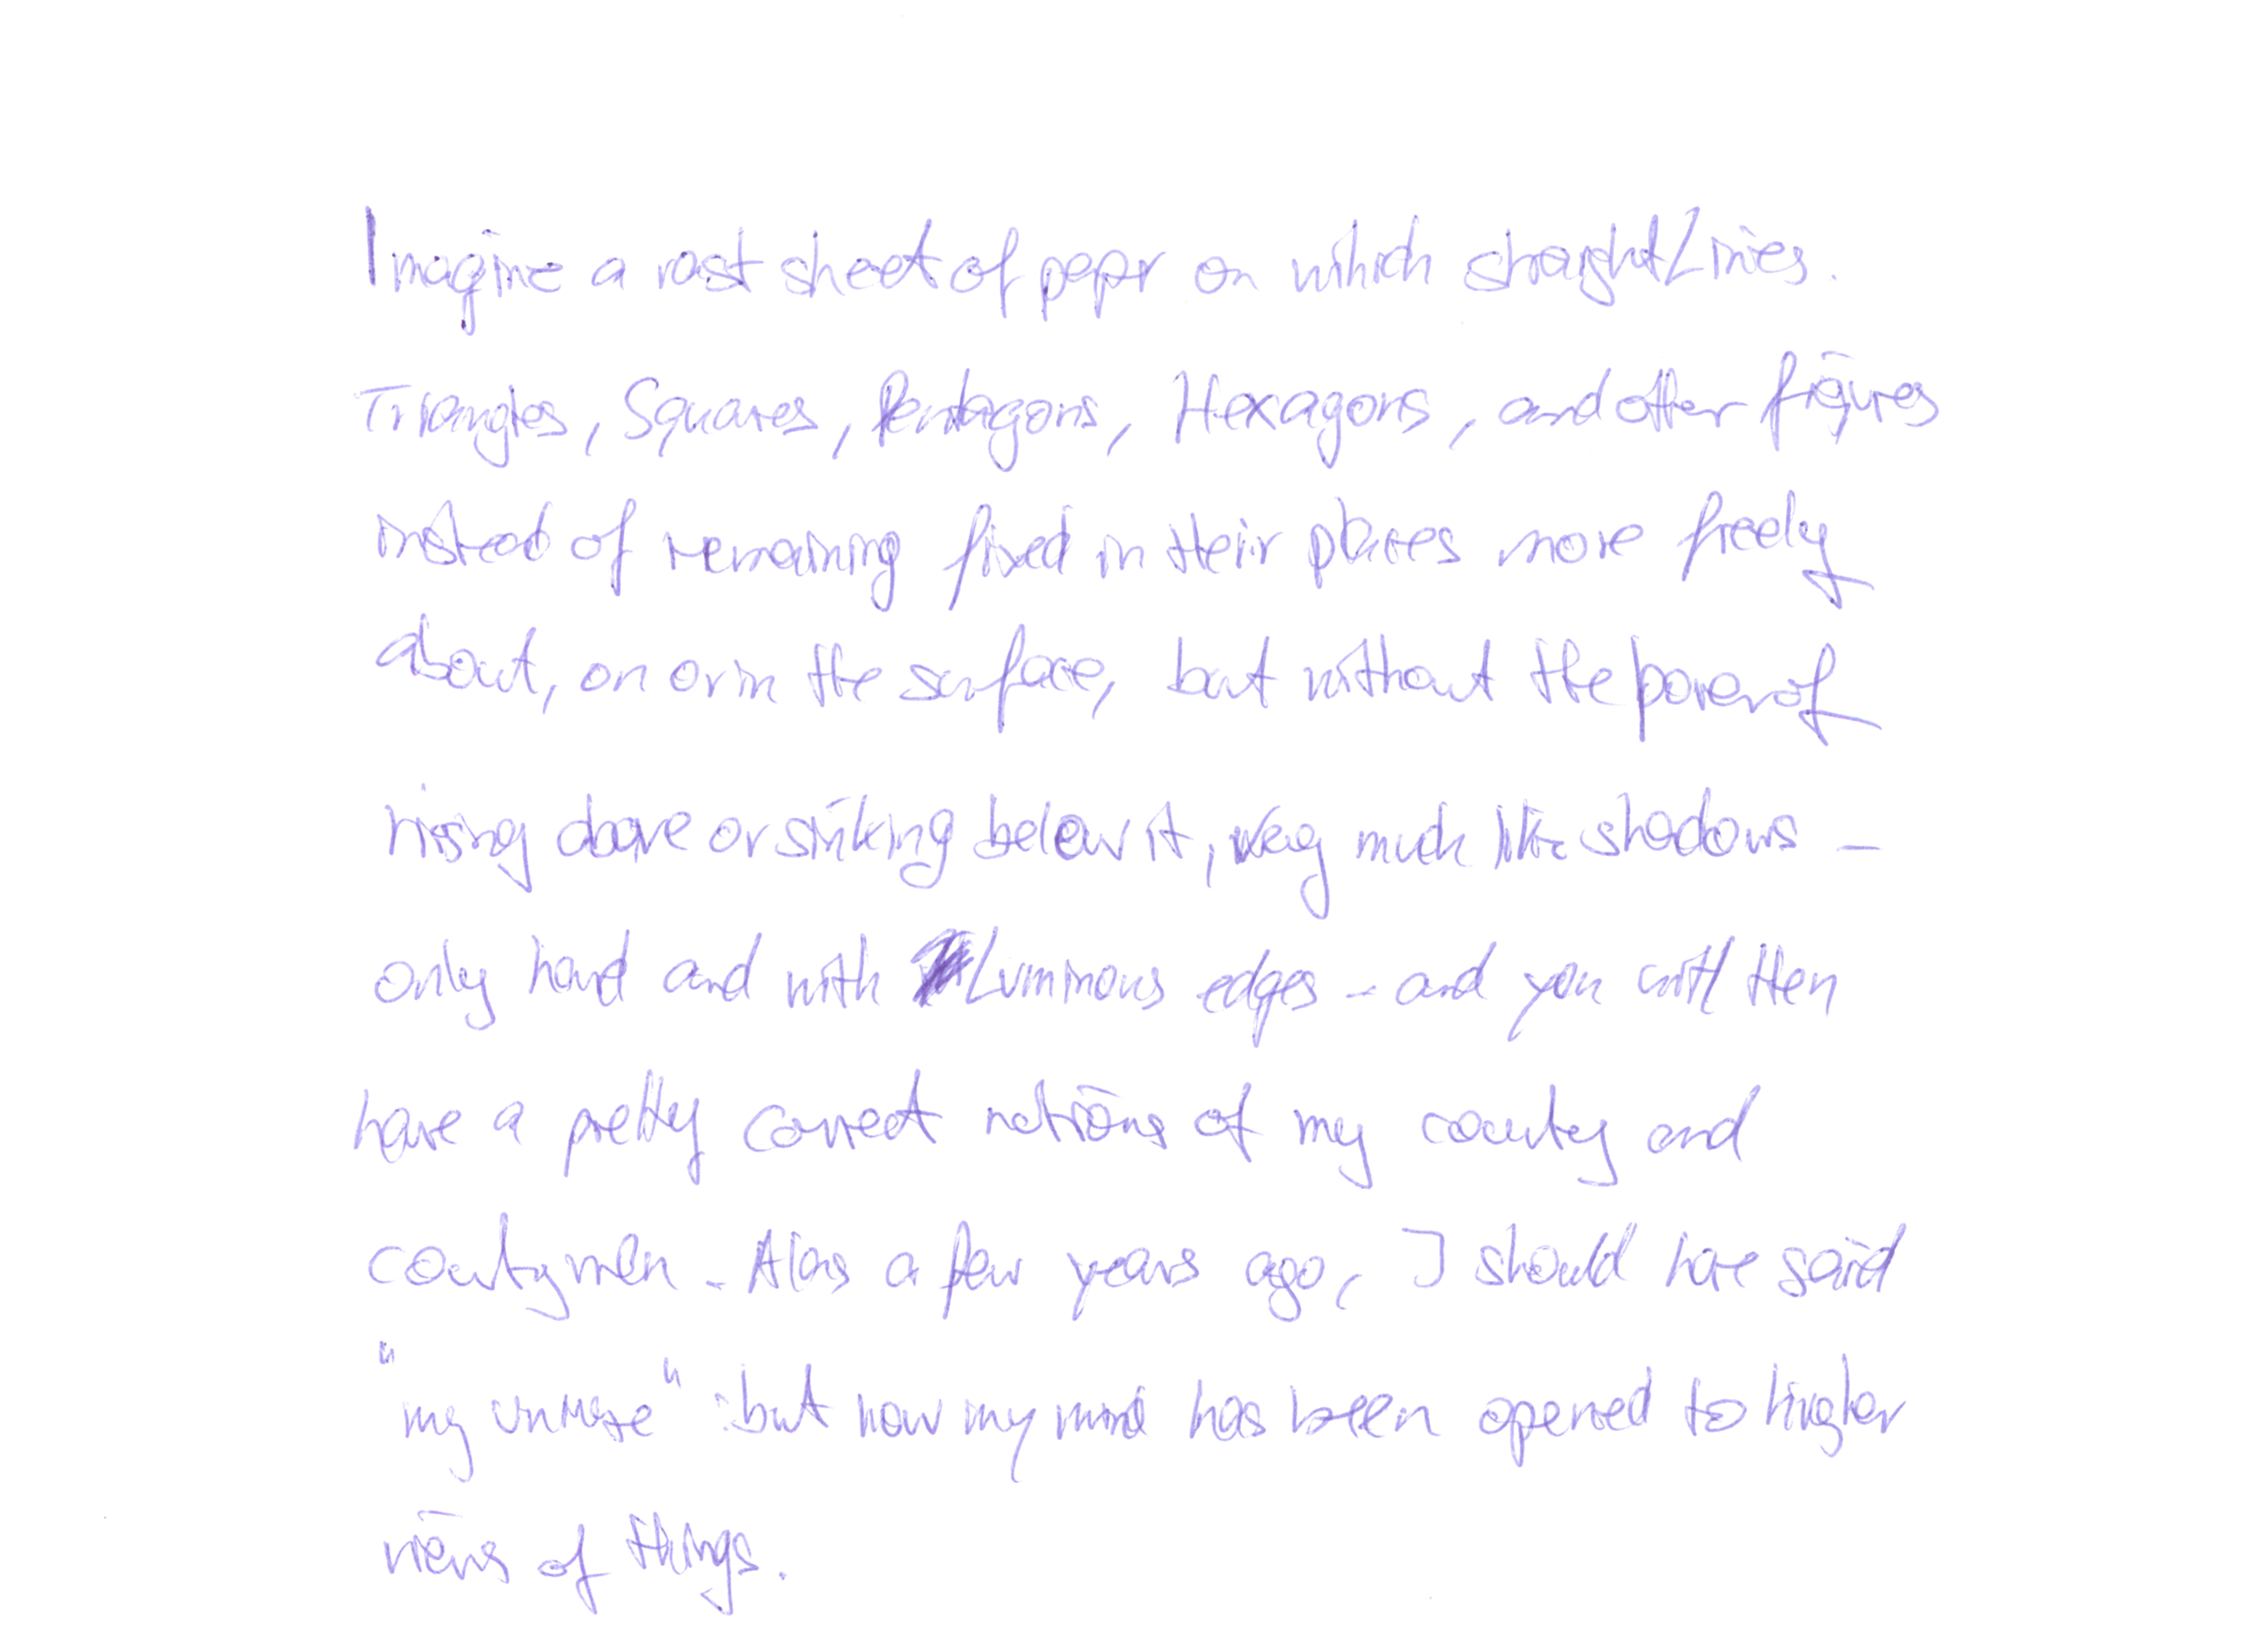 Imagine a vast sheet of paper on which straight Lines.
Triangles, Squares, Pentagons, Hexagons, and other figures
instead of remaining fixed in their places move freely
about, on or in the surface, but without the power of
rising above or sinking below it, very much like shadows -
only hard and with Luminous edges - and you will then
have a pretty correct notions of my country and
countrymen. Alas a few years ago, I should have said
"my universe" : but now my mind has been opened to higher
views of things.